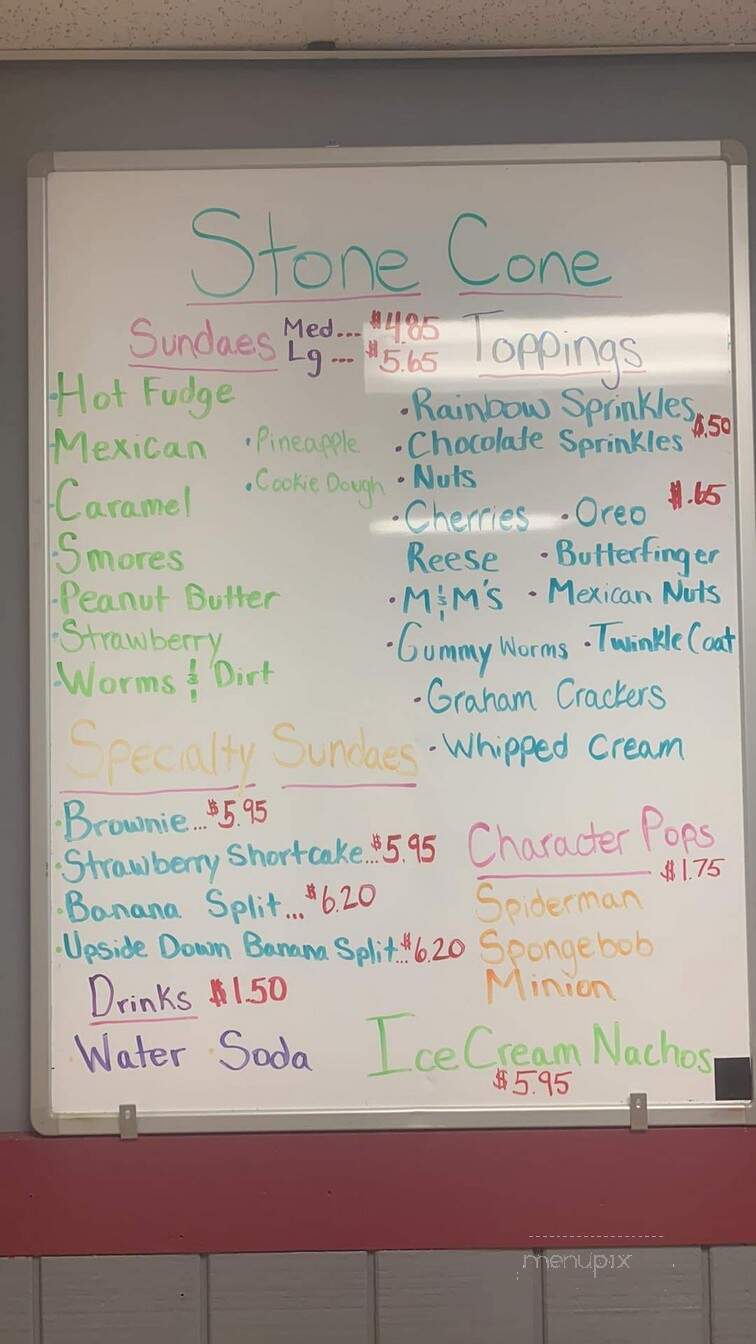 Stone Cone
Sundaes Med... $4.85
Lg --- $5.65
• Hot Fudge
• Mexican
• Pineapple
• Cookie Dough
• Caramel
• Smores
• Peanut Butter
• Strawberry
• Worms & Dirt
Toppings
• Rainbow Sprinkles
• Chocolate Sprinkles $.50
• Nuts
$.65
• Cherries • Oreo
Reese • Butterfinger
• M&M's • Mexican Nuts
• Gummy Worms • Twinkle Coat
• Graham Crackers
• Whipped Cream
Specialty Sundaes
• Brownie... $5.95
• Strawberry Shortcake... $5.95
• Banana Split... $6.20
• Upside Down Banana Split... $6.20
Character Pops
$1.75
Spiderman
Spongebob
Minion
Drinks $1.50
• Water • Soda
Ice Cream Nachos
$5.95
menupix